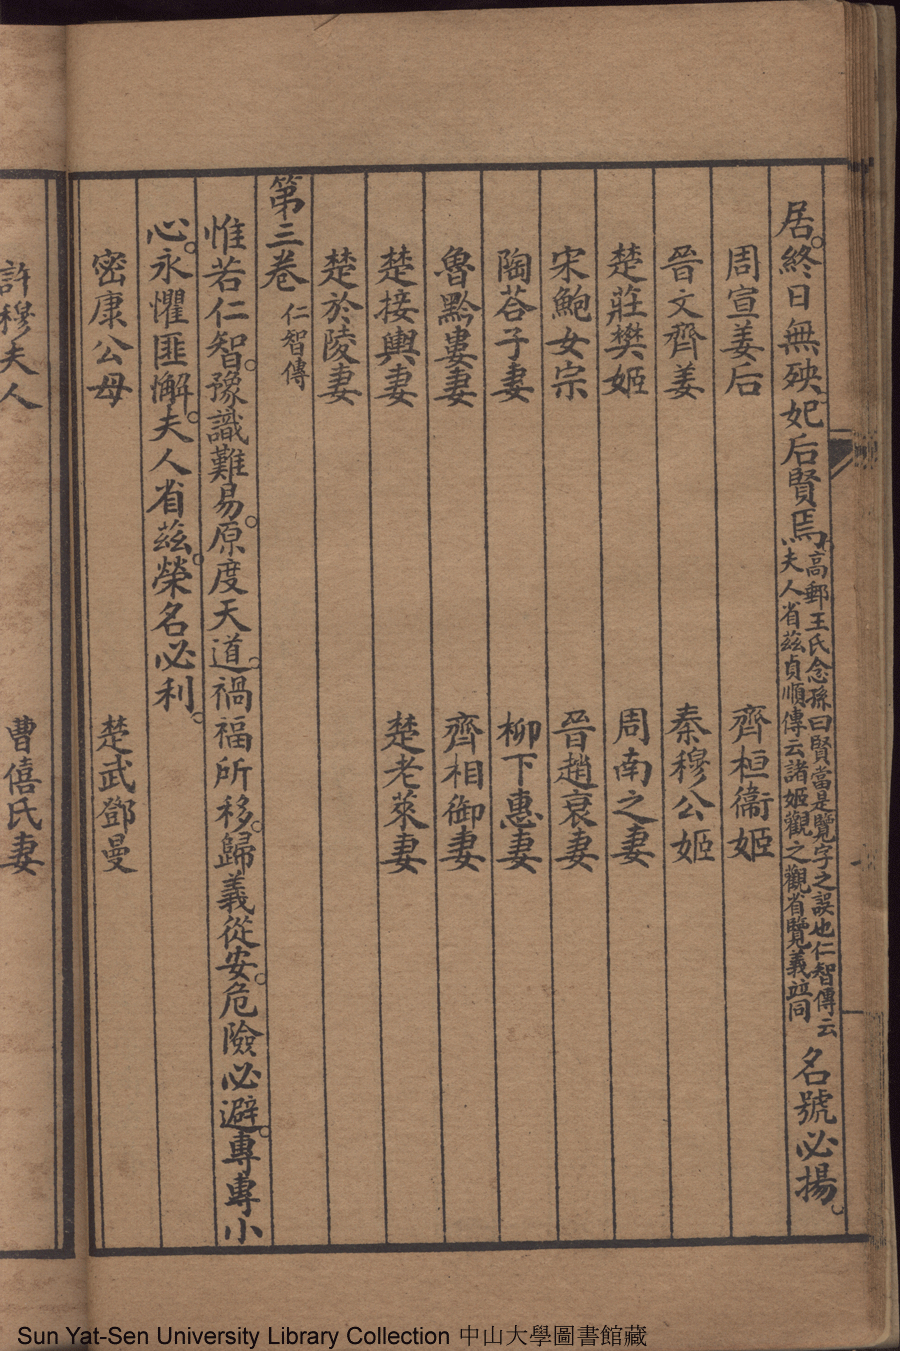 居。終日無殃。妃后賢焉。高郵王氏念孫曰賢當是覽字之誤也仁智傳云夫人省茲貞順傳云諸姬觀之觀省覽義竝同名號必揚。
周宣姜后 齊桓衞姬
晉文齊姜 秦穆公姬
楚莊樊姬 周南之妻
宋鮑女宗 晉趙衰妻
陶荅子妻 柳下惠妻
魯黔婁妻 齊相御妻
楚接輿妻 楚老萊妻
楚於陵妻
第三卷 仁智傳
惟若仁智。豫識難易。原度天道。禍福所移。歸義從安。危險必避。專專小
心。永懼匪懈。夫人省茲。榮名必利。
密康公母 楚武鄧曼
許穆夫人 曹僖氏妻
Sun Yat-Sen University Library Collection 中山大學圖書館藏